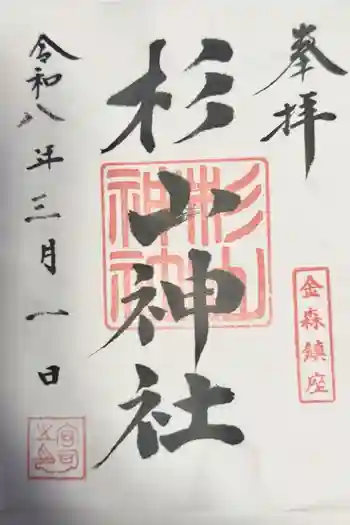 奉拝
杉山神社
杉山
神社
金森鎮座
令和八年三月一日
宮司之印